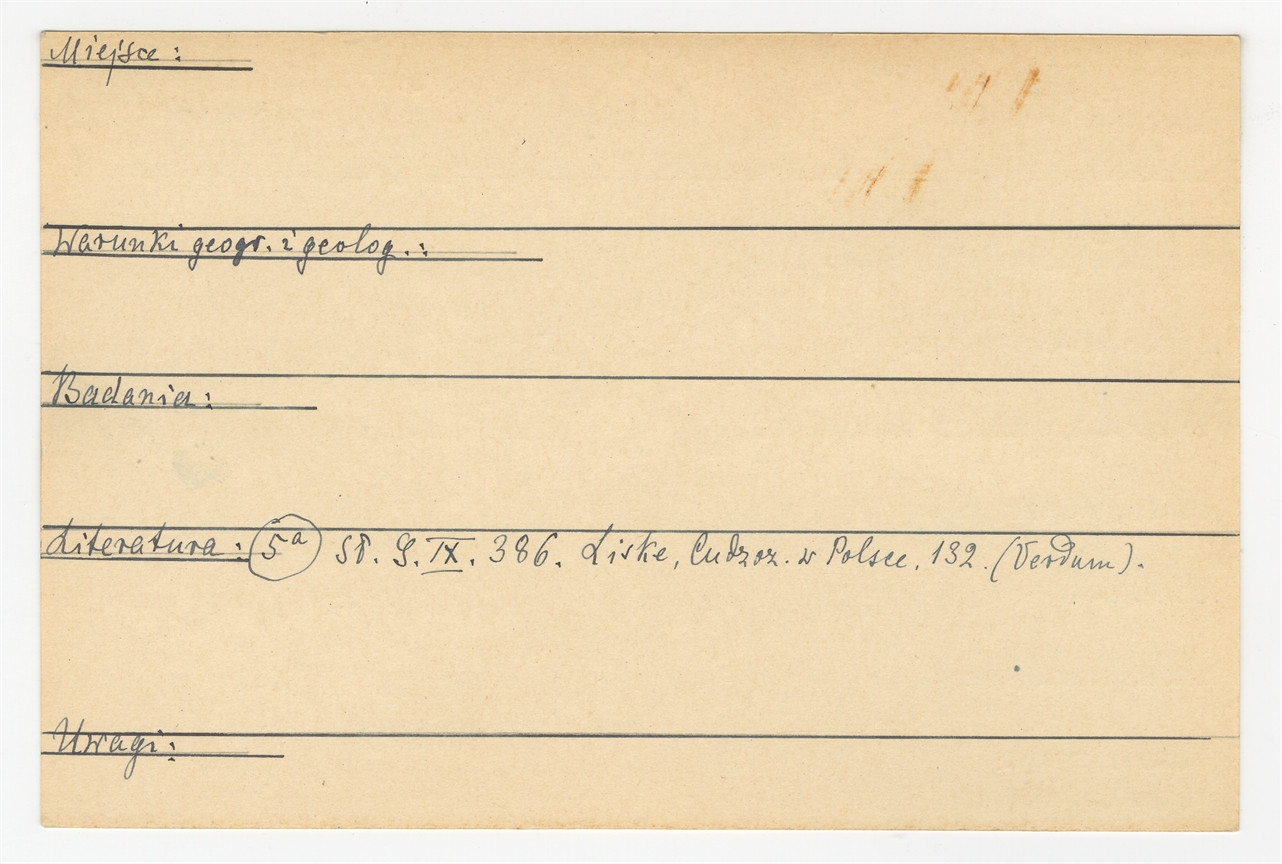 Miejsce :
Warunki geogr. i geolog. :
Badania :
Literatura : 5a Sł. G. IX. 386. Liske, Cudzoz. w Polsce, 132. (Verdum).
Uwagi :